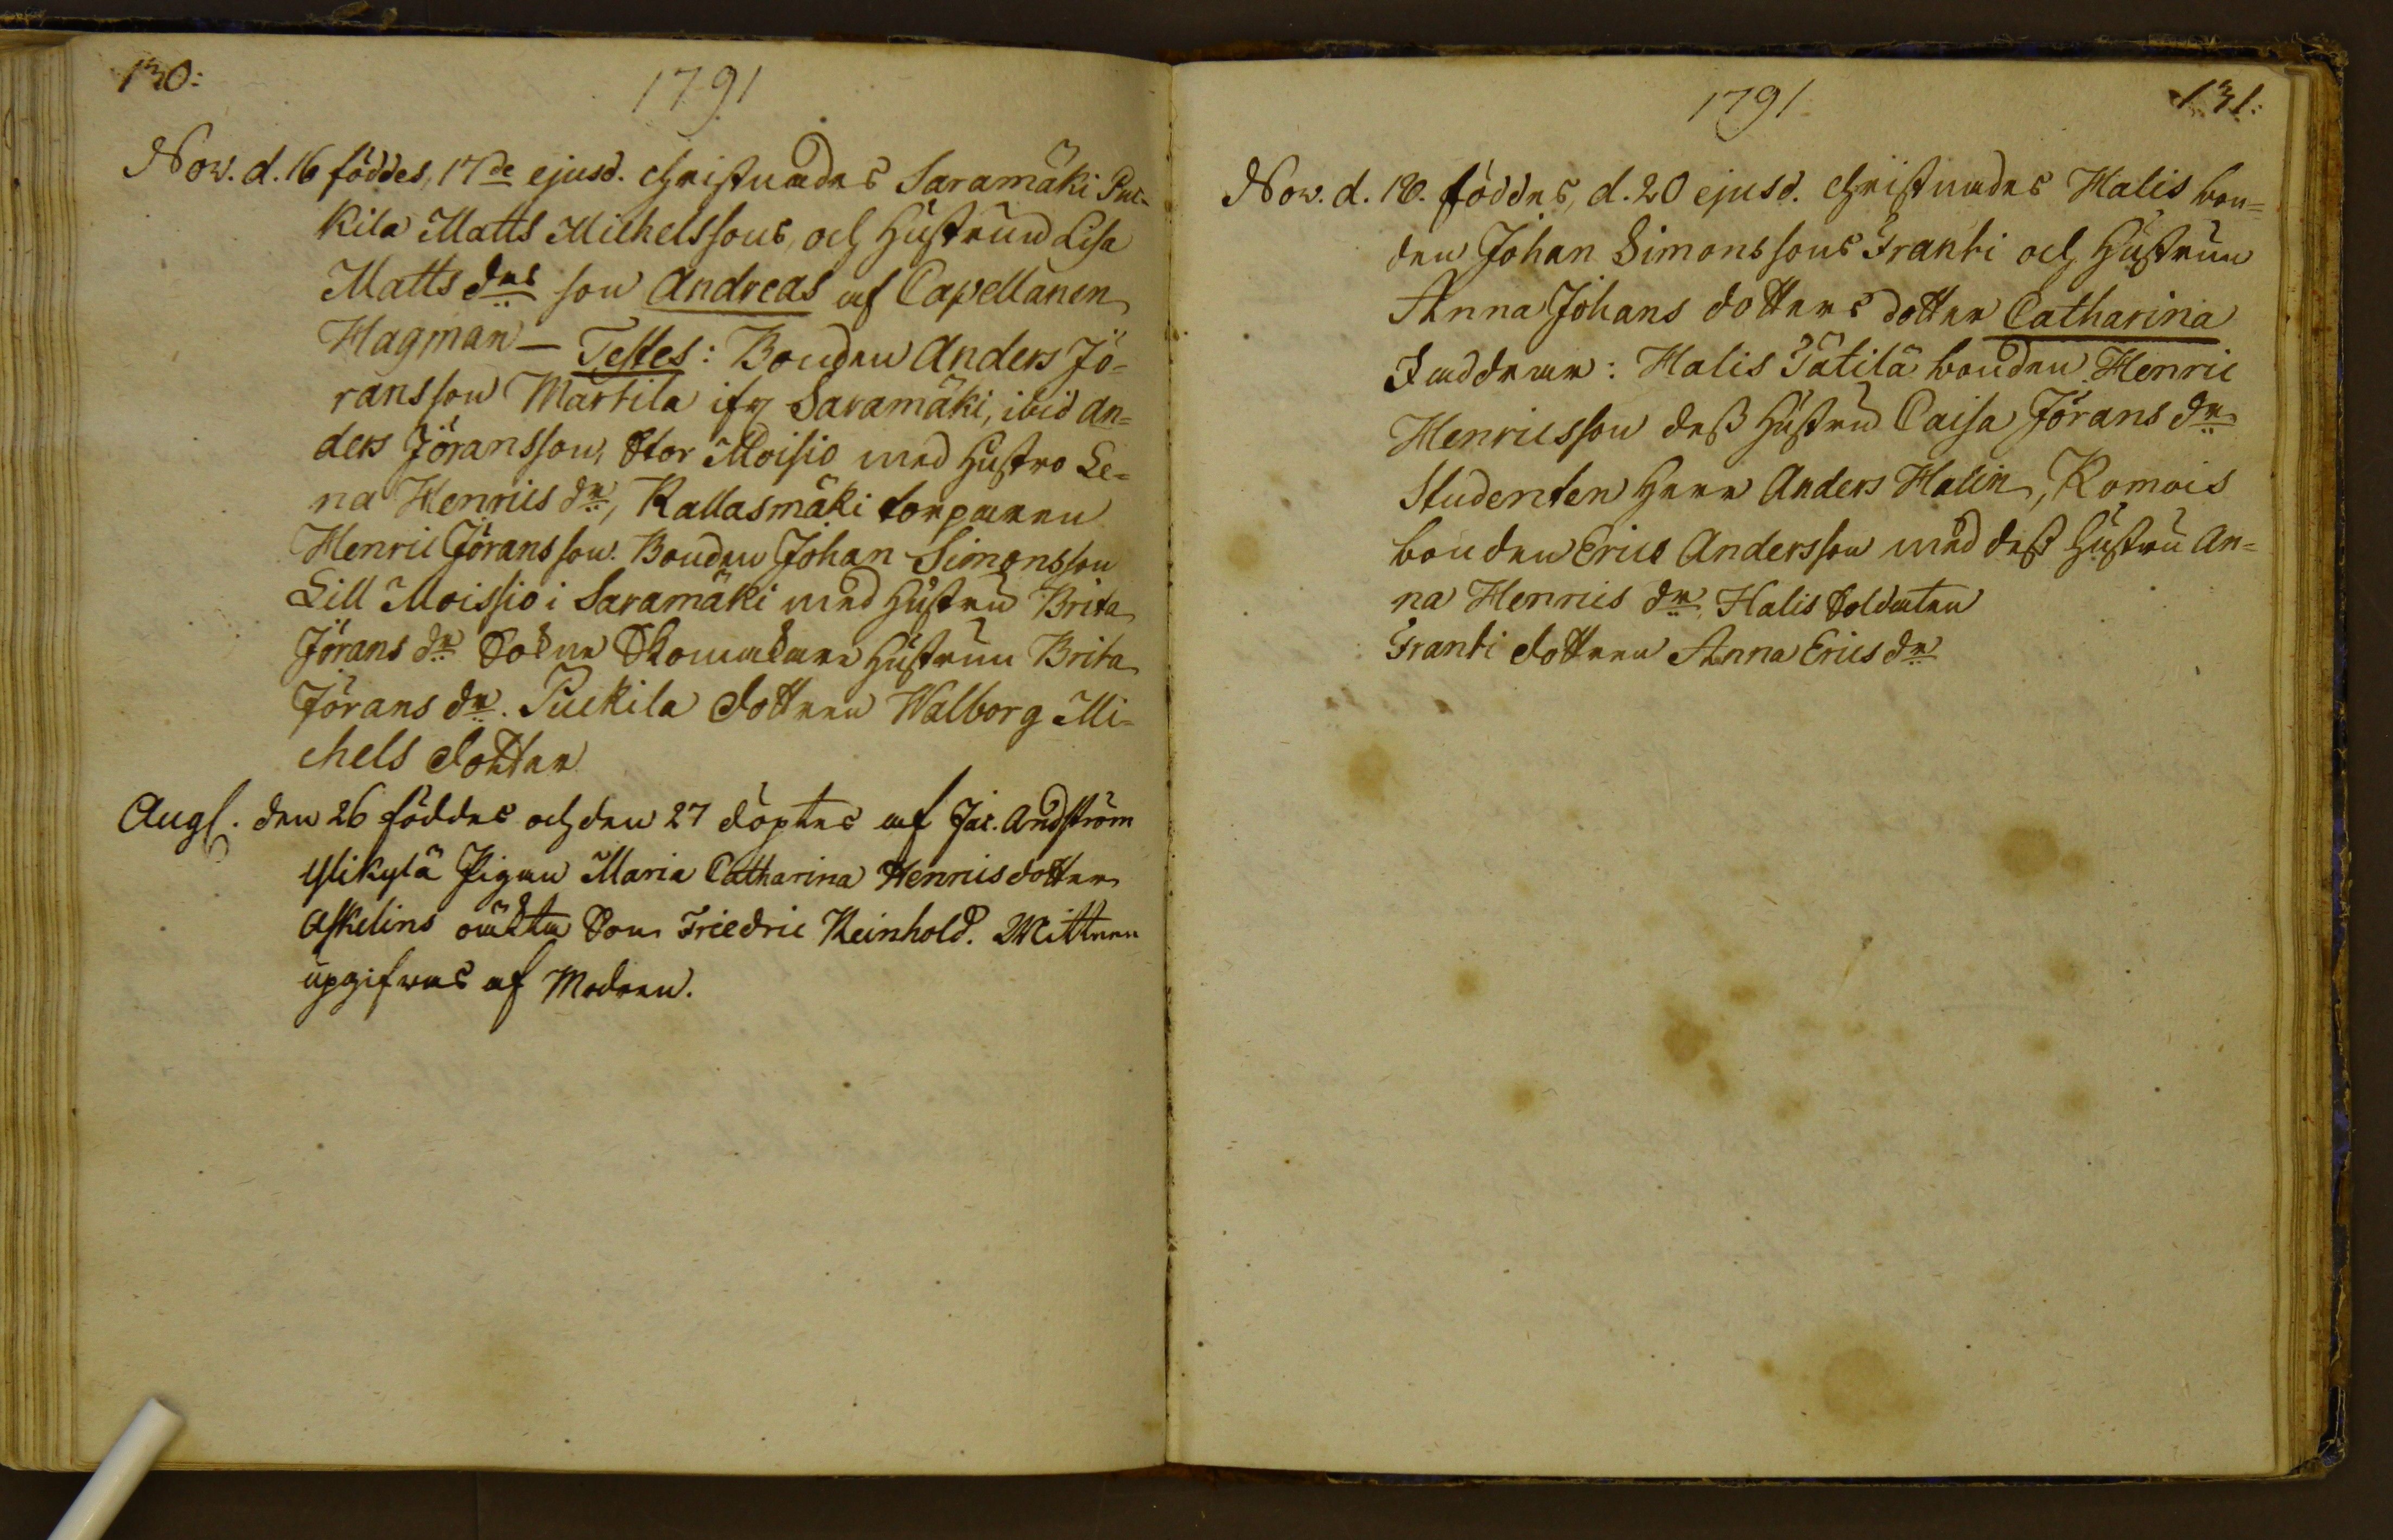 130:
1791
Nov. d. 16 föddes, 17de ejusd. christnades Saramäki Puc-
kila Matts Michelssons, och Hustrun Lisa
Matts drs son Andreas af Capellanen
Hagman — Testes: Bonden Anders Jö-
ransson Martila ifr Saramäki, ibid An-
ders Jöransson, Stor Moisio med Hustro Le-
na Henrics dr, Kallasmäki torparen
Henric Jöransson. Bonden Johan Simonsson
Lill Moissio i Saramäki med Hustru Brita
Jörans dr Sokne Skomakare Hustrun Brita
Jörans dr. Puckila dottren Walborg Mi-
chels dotter
Aug. den 26 föddes och den 27 döptes af Jac. Andström
Ylikylä Pigan Maria Catharina Henricsdotter
Askelins oäkta Son Friedric Reinhold. Wittnen
upgifwas af Modren.
1791
131:
Nov. d. 18. föddes, d. 20 ejusd. christnades Halis bon-
den Johan Simonssons Franti och Hustrun
Anna Johans dotters dotter Catharina
Faddrar: Halis Tätilä bonden Henric
Henricsson dess Hustru Caisa Jörans dr
Studenten Herr Anders Halin, Komois
bonden Erics Andersson med dess Hustru An-
na Henrics dr, Halis Soldaten
Franti dottren Anna Erics dr